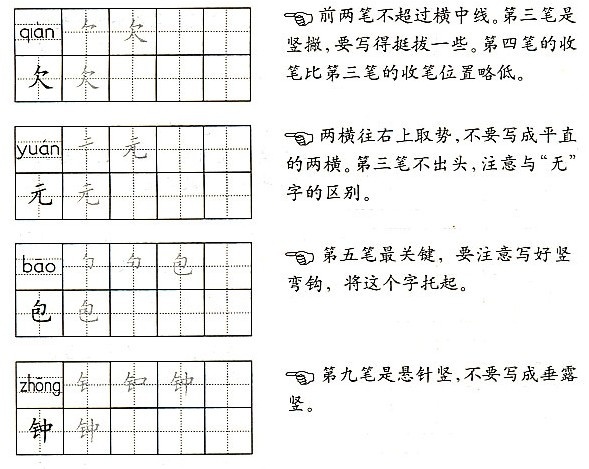 qiàn 𠂊 欠
前两笔不超过横中线。第三笔是
欠 欠
竖撇,要写得挺拔一些。第四笔的收
笔比第三笔的收笔位置略低。
yuán 二 元
两横往右上取势,不要写成平直
元 元
的两横。第三笔不出头,注意与“无”
字的区别。
bāo 勹 包
第五笔最关键,要注意写好竖
包 包
弯钩,将这个字托起。
zhōng 钅 钟
第九笔是悬针竖,不要写成垂露
钟 钟
竖。